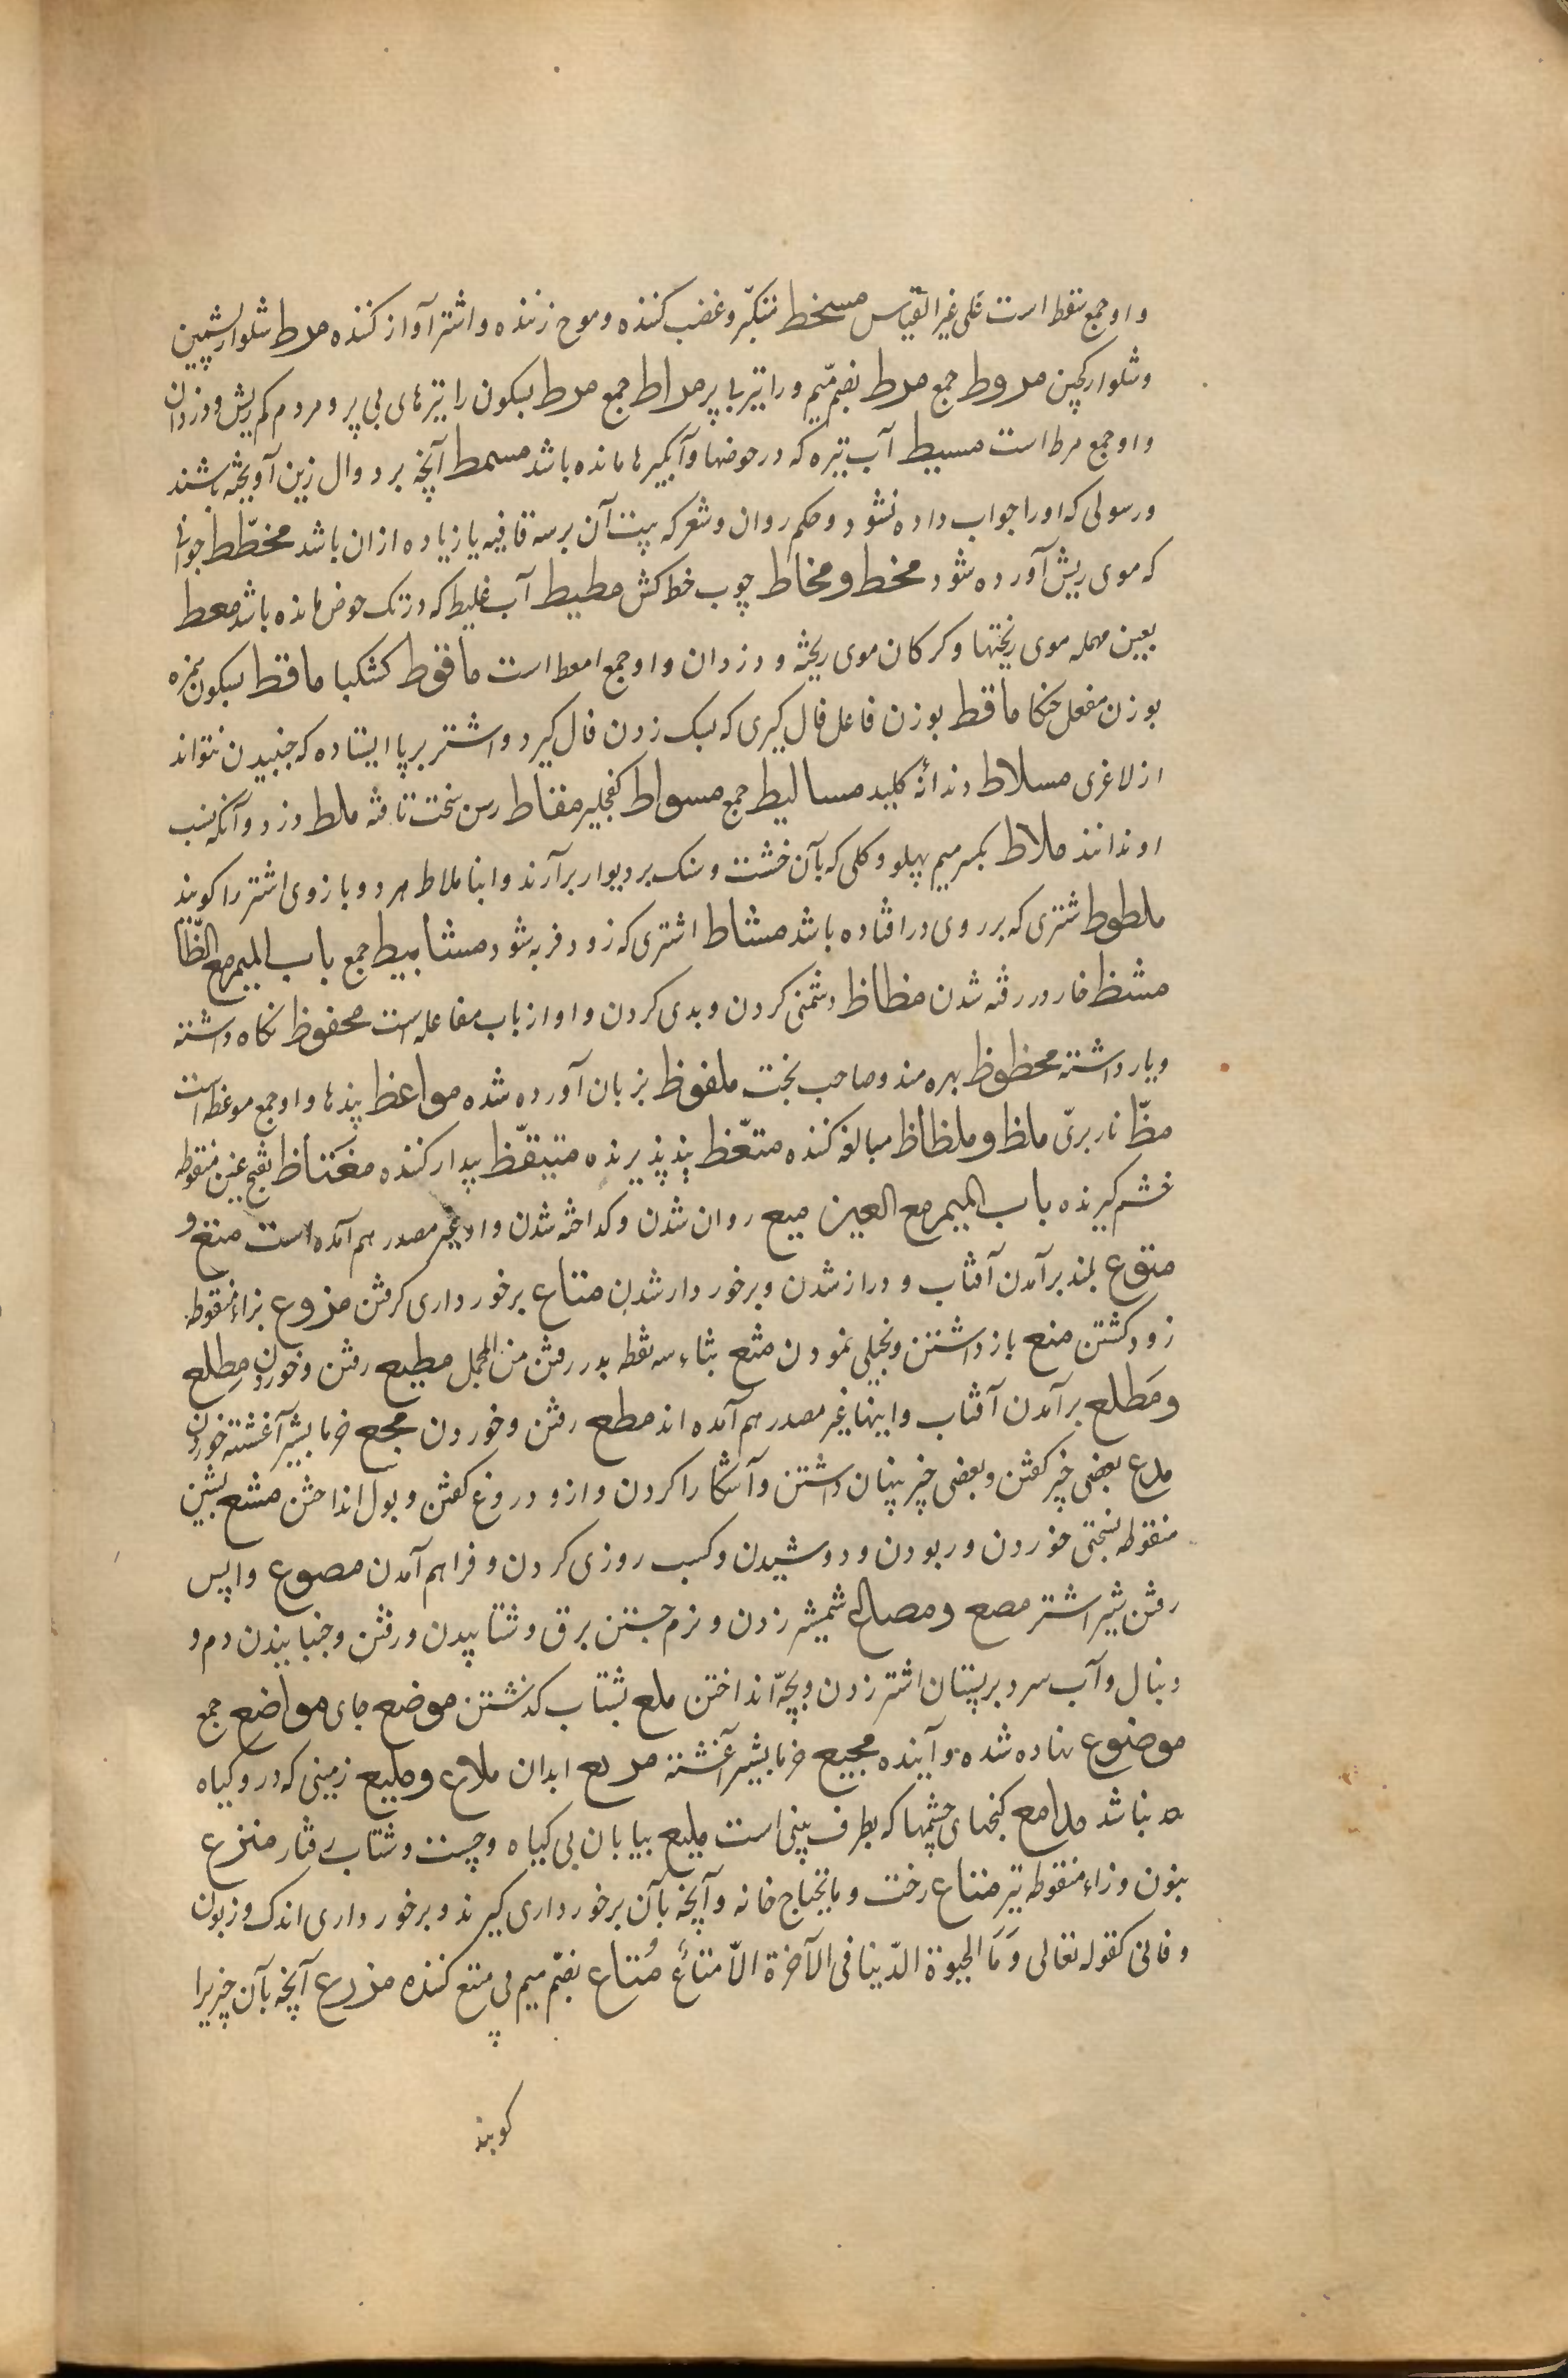 واو جمع سقط است علی غیر القیاس مسخط متکبّر و غضب کننده و موج زننده و اشتر آواز کننده مرط شلوار پشمین
و شلوار کجین مروط جمع مرط بضم میم و را تیر بی پر مراط جمع مرط بسکون را تیرهای بی پر و مردم کم ریش و دزدان
واو جمع مرط است مسیط آب تیره که در حوضها و آبکیرها مانده باشد مسمط آنچه بر دوال زین آویخته باشند
و رسولی که او را جواب داده نشود و حکم روان و شعر که بیت آن بر سه قافیه یا زیاده ازان باشد مخطّط جوانی
که موی ریش آورده شود مخط و مخاط چوب خط کش مطیط آب غلیظ که در تک حوض مانده باشد معط
بعین مهمله موی ریختها و کرکان موی ریخته و دزدان واو جمع امعط است ماقوط کشکبا ماقط بسکون همزه
بوزن مفعل جنکا ماقط بوزن فاعل فال کیری که بسنک زدن فال کیرد و اشتر برپا ایستاده که جنبیدن نتواند
از لاغری مسلاط دندانهٔ کلید مسالیط جمع مسواط کفچلیر مقاط رسن سخت تافته ملط دزد و آنکه نسب
او ندانند ملاط بکسر میم پهلو و کلی که بآن خشت و سنک بر دیوار برآرند و ابنا ملاط هر دو بازوی اشتر را کویند
ملطوط شتری که بر روی در افتاده باشد مشاط اشتری که زود فربه شود مشابیط جمع باب المیم مع الظّا
مشظ خار در رفته شدن مظاظ دشمنی کردن و بدی کردن و او از باب مفاعله است محفوظ نکاه داشته
و یاد داشته محظوظ بهره مند و صاحب بخت ملفوظ بزبان آورده شده مواعظ پندها واو جمع موعظه است
مظّ نار برّی ملظ و ملظاظ مبالغه کننده متعّظ پند پذیرنده متیقّظ بیدار کننده مغتاظ بفتح غین منقوطه
خشم کیرنده باب المیم مع العین میع روان شدن و کداخته شدن و او غیر مصدر هم آمده است متع و
متوع بلند برآمدن آفتاب و دراز شدن و برخوردار شدن متاع برخورداری کرفتن مزوع بزاء منقوطه
زود کشتن منع باز داشتن و بخیلی نمودن مثع بثاء سه نقطه بدر رفتن من المجمل مطیع رفتن و خوردن مِطلع
و مَطلع برآمدن آفتاب و اینها غیر مصدر هم آمده اند مطع رفتن و خوردن مجع خرما بشیر آغشته خوردن
مذع بعضی چیز کفتن و بعضی چیز پنهان داشتن و آشکارا کردن و ازو دروغ کفتن و بول انداختن مشع بشین
منقوطه بسختی خوردن و ربودن و دوشیدن و کسب روزی کردن و فراهم آمدن مصوع واپس
رفتن شیر اشتر مصع و مصاع شمشیر زدن و نرم جستن برق و شتابیدن و رفتن و جنبانیدن دم و
دنبال و آب سرد بر پستان اشتر زدن و بچّه انداختن ملع بشتاب کذشتن موضع جای مواضع جمع
موضوع نهاده شده و آینده مجیع خرما بشیر آغشته مریع ابدان ملاع و ملیع زمینی که درو کیاه
نباشد مدامع کنجهای چشمها که بطرف بینی است ملیع بیابان بی کیاه و چست و شتاب رفتار منزع
بنون و زاء منقوطه تیر متاع رخت و مایحتاج خانه و آنچه بآن برخورداری کیرند و برخورداری اندک و زبون
و فانی کقوله تعالی وَمَا الحیوة الدّینا فی الآخرة الّا متاعٌ مُتاع بضمّ میم می متع کننده مذرع آنچه بآن چیزیرا
کویند